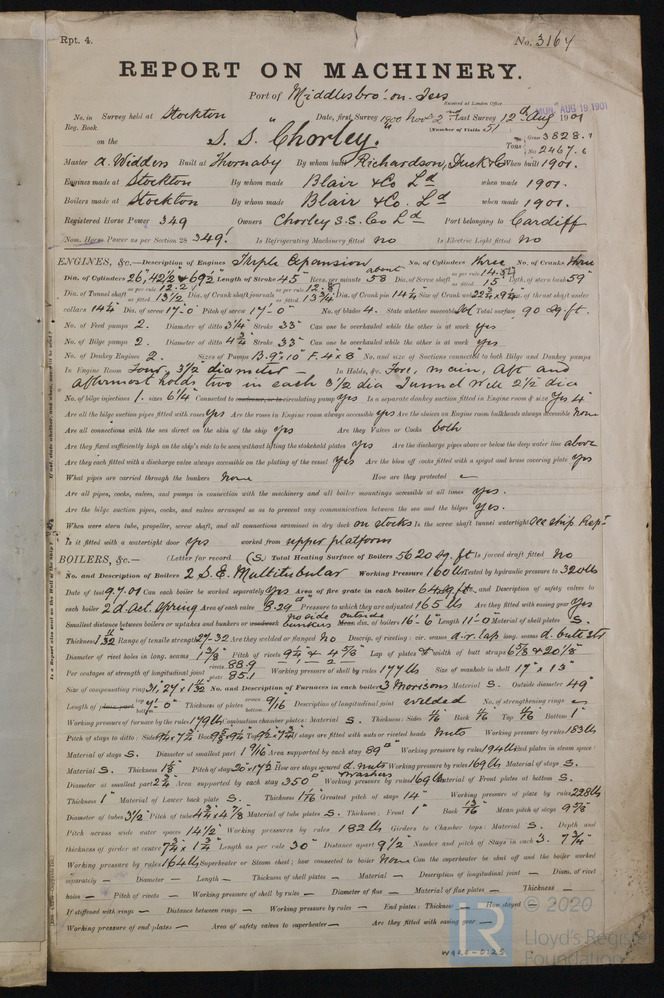 Rpt. 4.
No. 3164
REPORT ON MACHINERY.
Port of Middlesbro'-on-Tees
Received at London Office
MON. AUG 19 1901
No. in Survey held at Stockton Date, first Survey 1900 Nov 2nd Last Survey 12th Aug 1901
Reg. Book. (Number of Visits 51
on the S. S. "Chorley." Tons Gross 3828.
Net 2467.6
Master A. Widders Built at Thornaby By whom built Richardson, Duck & Co When built 1901.
Engines made at Stockton By whom made Blair & Co. Ld when made 1901.
Boilers made at Stockton By whom made Blair & Co. Ld when made 1901.
Registered Horse Power 349 Owners Chorley S.S. Co Ld Port belonging to Cardiff
Nom. Horse Power as per Section 28 349. Is Refrigerating Machinery fitted No Is Electric Light fitted No
ENGINES, &c.—Description of Engines Triple Expansion No. of Cylinders Three No. of Cranks Three
Dia. of Cylinders 26", 42½ & 69½" Length of Stroke 45" Revs. per minute about 58 Dia. of Screw shaft as per rule 14.52 as fitted 15" Lgth. of stern bush 59"
Dia. of Tunnel shaft as per rule 12.21 as fitted 13½ Dia. of Crank shaft journals as per rule 12.8 as fitted 13¾ Dia. of Crank pin 14¼" Size of Crank webs 22¾ x 9¼ Dia. of thrust shaft under
collars 14¼ Dia. of screw 17'-0" Pitch of screw 17'-0" No. of blades 4. State whether moveable Sol Total surface 90 sq. ft.
No. of Feed pumps 2. Diameter of ditto 3¼" Stroke 33" Can one be overhauled while the other is at work Yes
No. of Bilge pumps 2. Diameter of ditto 4¾ Stroke 33" Can one be overhauled while the other is at work Yes.
No. of Donkey Engines 2. Sizes of Pumps B. 9" x 10" F. 4" x 8" No. and size of Suctions connected to both Bilge and Donkey pumps
In Engine Room Four, 3½ diameter — In Holds, &c. Fore, main, Aft and
aftermost holds two in each 3½ dia Tunnel Well 2½ dia
No. of bilge injections 1. sizes 6¼" Connected to condenser, or to circulating pump Yes Is a separate donkey suction fitted in Engine room & size Yes 4"
Are all the bilge suction pipes fitted with roses Yes Are the roses in Engine room always accessible Yes Are the sluices on Engine room bulkheads always accessible None
Are all connections with the sea direct on the skin of the ship Yes Are they Valves or Cocks both
Are they fixed sufficiently high on the ship's side to be seen without lifting the stokehold plates Yes Are the discharge pipes above or below the deep water line above
Are they each fitted with a discharge valve always accessible on the plating of the vessel Yes Are the blow off cocks fitted with a spigot and brass covering plate Yes
What pipes are carried through the bunkers None How are they protected —
Are all pipes, cocks, valves, and pumps in connection with the machinery and all boiler mountings accessible at all times Yes.
Are the bilge suction pipes, cocks, and valves arranged so as to prevent any communication between the sea and the bilges Yes.
When were stern tube, propeller, screw shaft, and all connections examined in dry dock on stocks Is the screw shaft tunnel watertight See Ship Rept
Is it fitted with a watertight door Yes worked from upper platform
BOILERS, &c.— (Letter for record (S) Total Heating Surface of Boilers 5620 sq. ft Is forced draft fitted No
No. and Description of Boilers 2 S.E. Multitubular Working Pressure 160 lbs Tested by hydraulic pressure to 320 lbs
Date of test 9.7.01 Can each boiler be worked separately Yes Area of fire grate in each boiler 64 sq. ft. No. and Description of safety valves to
each boiler 2 d. act. Spring Area of each valve 8.29 Pressure to which they are adjusted 165 lbs Are they fitted with easing gear Yes
Smallest distance between boilers or uptakes and bunkers or woodwork Mean dia. of boilers 16'-6" Length 11'-0" Material of shell plates S.
Thickness 1 5/32 Range of tensile strength 27-32 Are they welded or flanged No Descrip. of riveting: cir. seams d. r. lap long. seams d. butt str
Diameter of rivet holes in long. seams 1 3/16" Pitch of rivets 9¼ & 4⅝ Lap of plates or width of butt straps 6⅝ & 20⅛
Per centages of strength of longitudinal joint rivets 88.9 plate 85.1 Working pressure of shell by rules 177 lb Size of manhole in shell 17" x 13"
Size of compensating ring 31, 27 x 1 5/32 No. and Description of Furnaces in each boiler 3 Morisons Material S. Outside diameter 49"
Thickness of plates 9/16 Description of longitudinal joint welded No. of strengthening rings —
Working pressure of furnace by the rules 179 lb Combustion chamber plates: Material S. Thickness: Sides Back Top Bottom 1"
Pitch of stays to ditto: Sides Back Top If stays are fitted with nuts or riveted heads Nuts Working pressure by rules 183 lb
Material of stays S. Diameter at smallest part 1 9/16 Area supported by each stay 89 Working pressure by rules 194 lb End plates in steam space:
Material S. Thickness 1⅛ Pitch of stays 20 x 17½ How are stays secured d. nuts & washers Working pressure by rules 169 lb Material of stays S.
Diameter at smallest part 2¾ Area supported by each stay 350 Working pressure by rules 169 lb Material of Front plates at bottom S.
Thickness 1" Material of Lower back plate S. Thickness 1 1/16 Greatest pitch of stays 14" Working pressure of plate by rules 228 lb
Diameter of tubes 3½ Pitch of tubes 4¾ x 4⅞ Material of tube plates S. Thickness: Front 1" Back 13/16 Mean pitch of stays 9⅝
Pitch across wide water spaces 14½" Working pressures by rules 182 lb Girders to Chamber tops: Material S. Depth and
thickness of girder at centre 7¾ x 1¾ Length as per rule 30" Distance apart 9½" Number and pitch of Stays in each 3. 7¾"
Working pressure by rules 164 lb Superheater or Steam chest; how connected to boiler None Can the superheater be shut off and the boiler worked
separately — Diameter — Length — Thickness of shell plates — Material — Description of longitudinal joint — Diam. of rivet
holes — Pitch of rivets — Working pressure of shell by rules — Diameter of flue — Material of flue plates — Thickness —
If stiffened with rings — Distance between rings — Working pressure by rules — End plates: Thickness — How stayed —
Working pressure of end plates — Area of safety valves to superheater — Are they fitted with easing gear —
W922-0125
© 2020
Lloyd's Register
Foundation